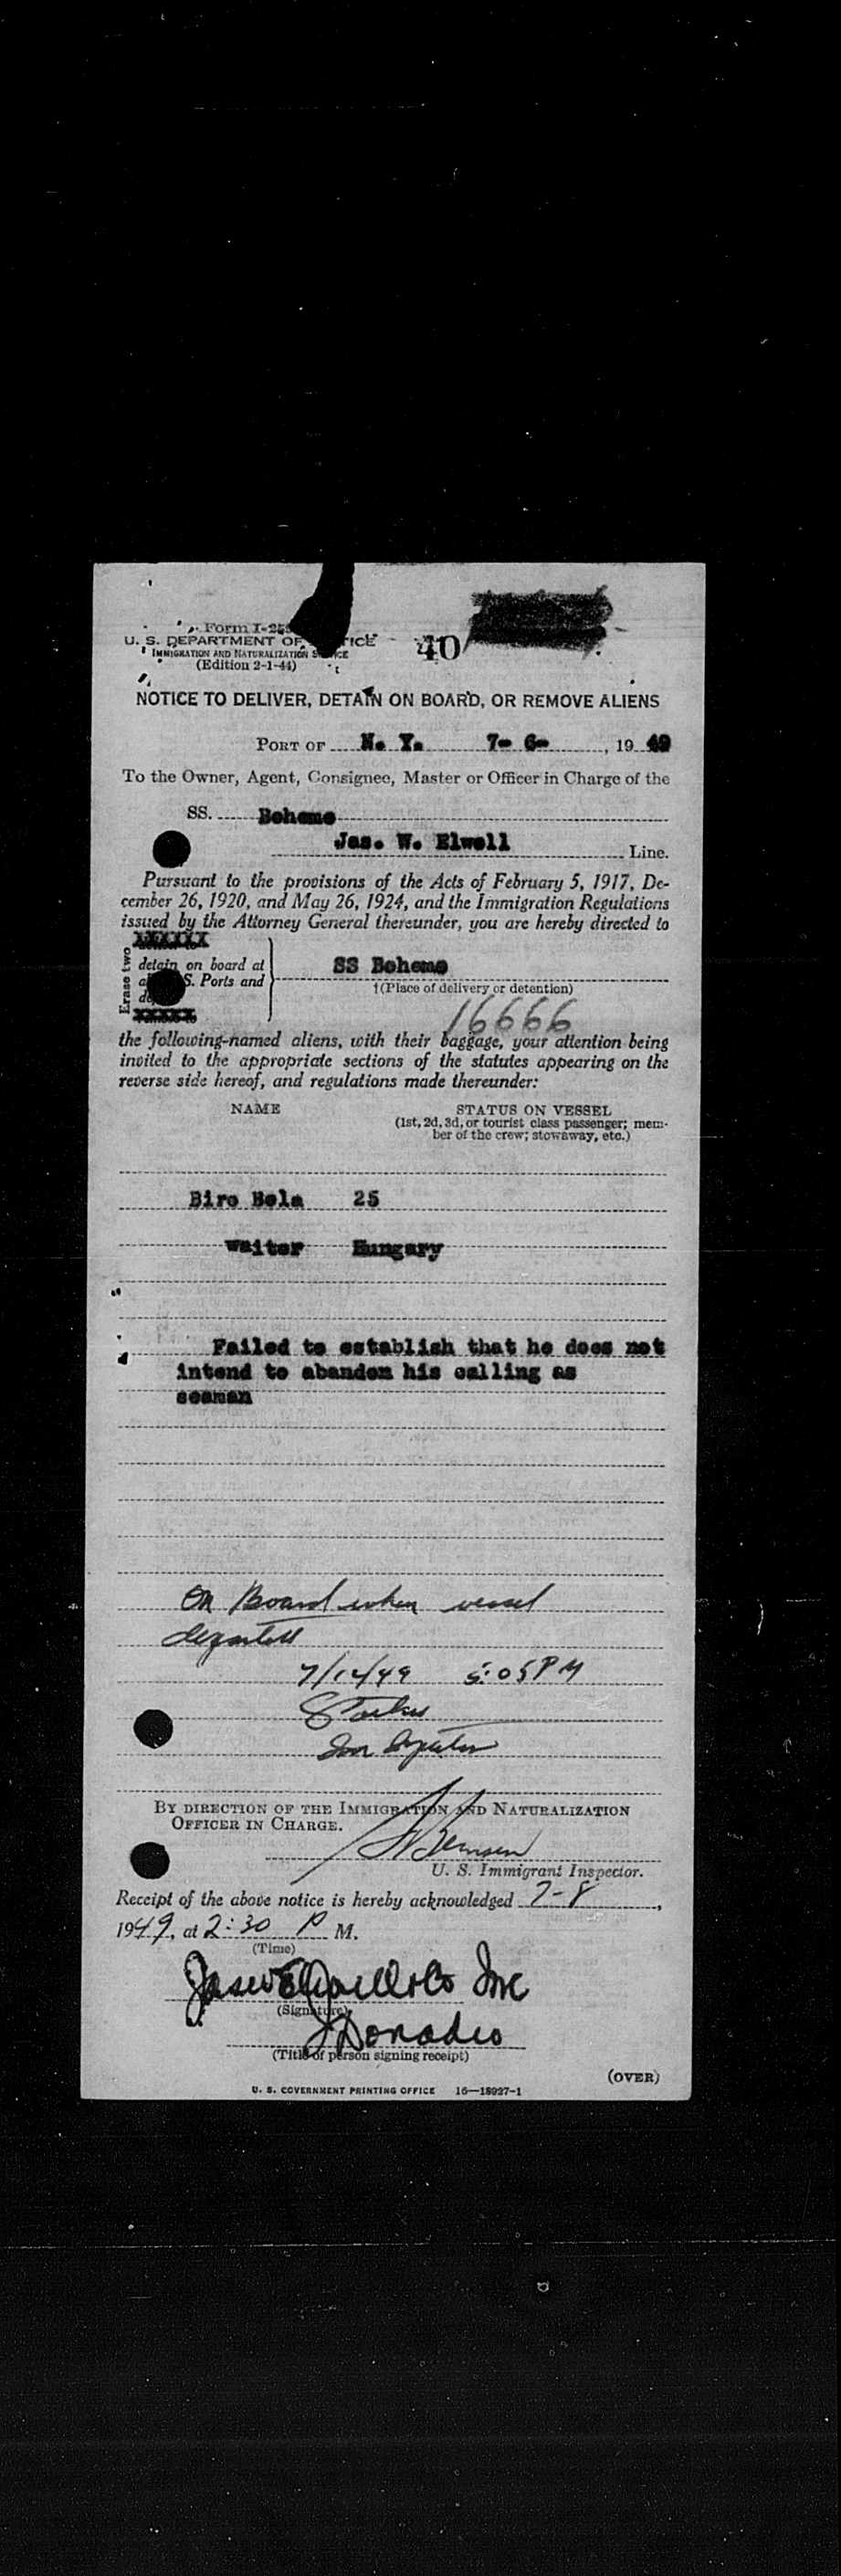 Form I-25
U. S. DEPARTMENT OF
40
IMMIGRATION AND NATURALIZATION
(Edition 2-1-44)
NOTICE TO DELIVER, DETAIN ON BOARD, OR REMOVE ALIENS
PORT OF N. Y. 7- 6- , 19 49
To the Owner, Agent, Consignee, Master or Officer in Charge of the
SS. Boheme
Jas. W. Elwell Line.
Pursuant to the provisions of the Acts of February 5, 1917, De-
cember 26, 1920, and May 26, 1924, and the Immigration Regulations
issued by the Attorney General thereunder, you are hereby directed to
Erase two
detain on board at
S. Ports and
SS Boheme
†(Place of delivery or detention)
16666
the following-named aliens, with their baggage, your attention being
invited to the appropriate sections of the statutes appearing on the
reverse side hereof, and regulations made thereunder:
NAME
STATUS ON VESSEL
(1st, 2d, 3d, or tourist class passenger; mem-
ber of the crew; stowaway, etc.)
Biro Bela 25
Waiter Hungary
Failed to establish that he does not
intend to abandon his calling as
seaman
On Board when vessel
departed
5:05 PM
BY DIRECTION OF THE IMMIGRATION AND NATURALIZATION
OFFICER IN CHARGE.
U. S. Immigrant Inspector.
Receipt of the above notice is hereby acknowledged 7-8,
1949, at 2:30 P M.
(Time)
Inc
(Signature)
J Donadio
(Title of person signing receipt)
(OVER)
U. S. GOVERNMENT PRINTING OFFICE 16—18927-1